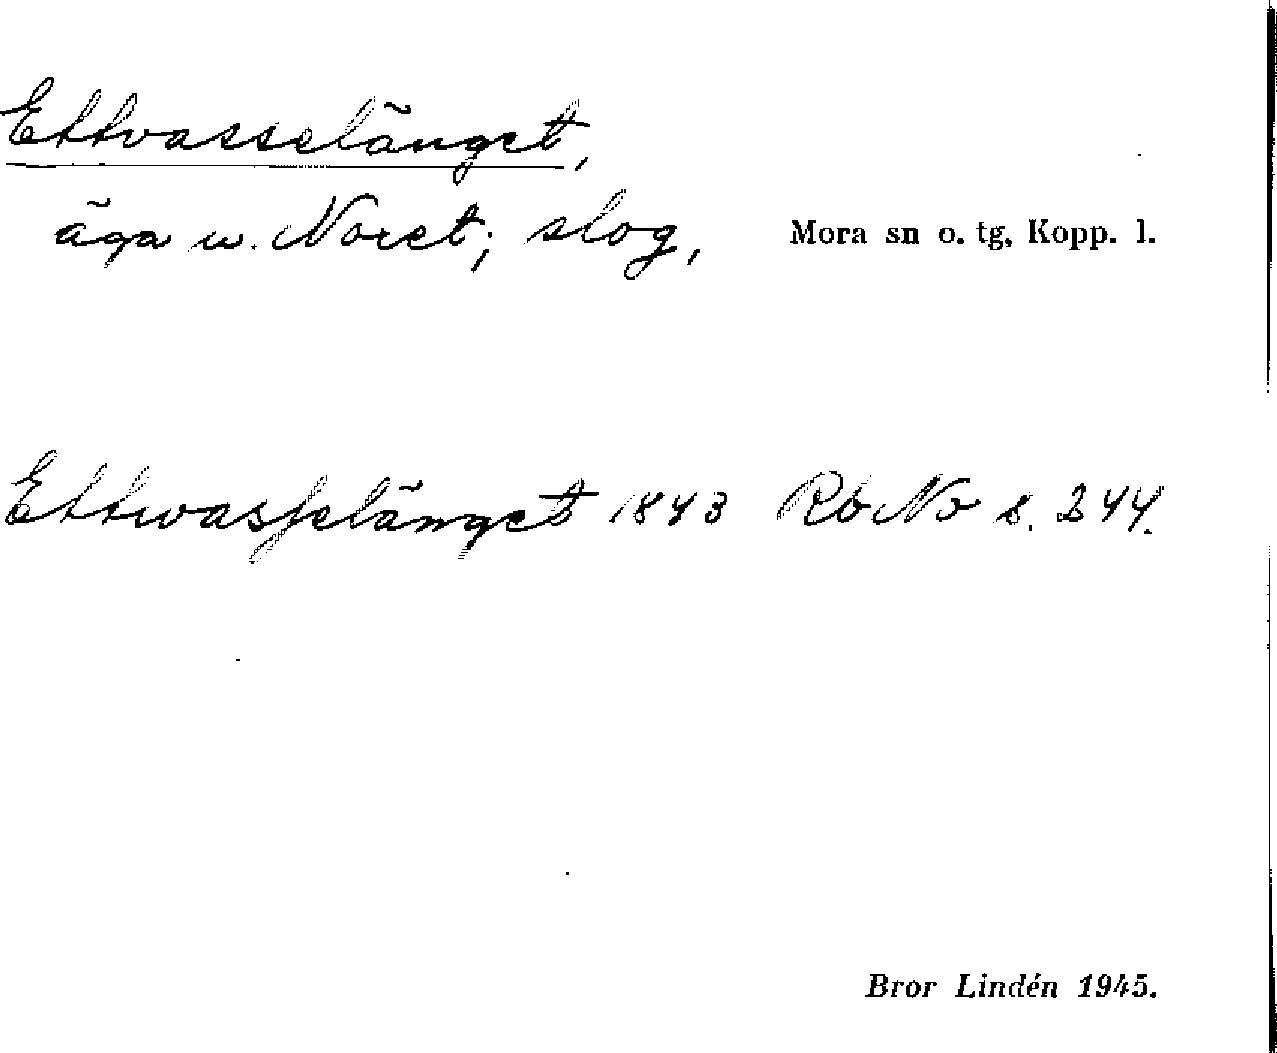 Ettvasselänget,
äga u. Noret; slog, Mora sn o. tg, Kopp. l.
Ettwasselänget 1843 Rb No s. 244.
Bror Lindén 1945.